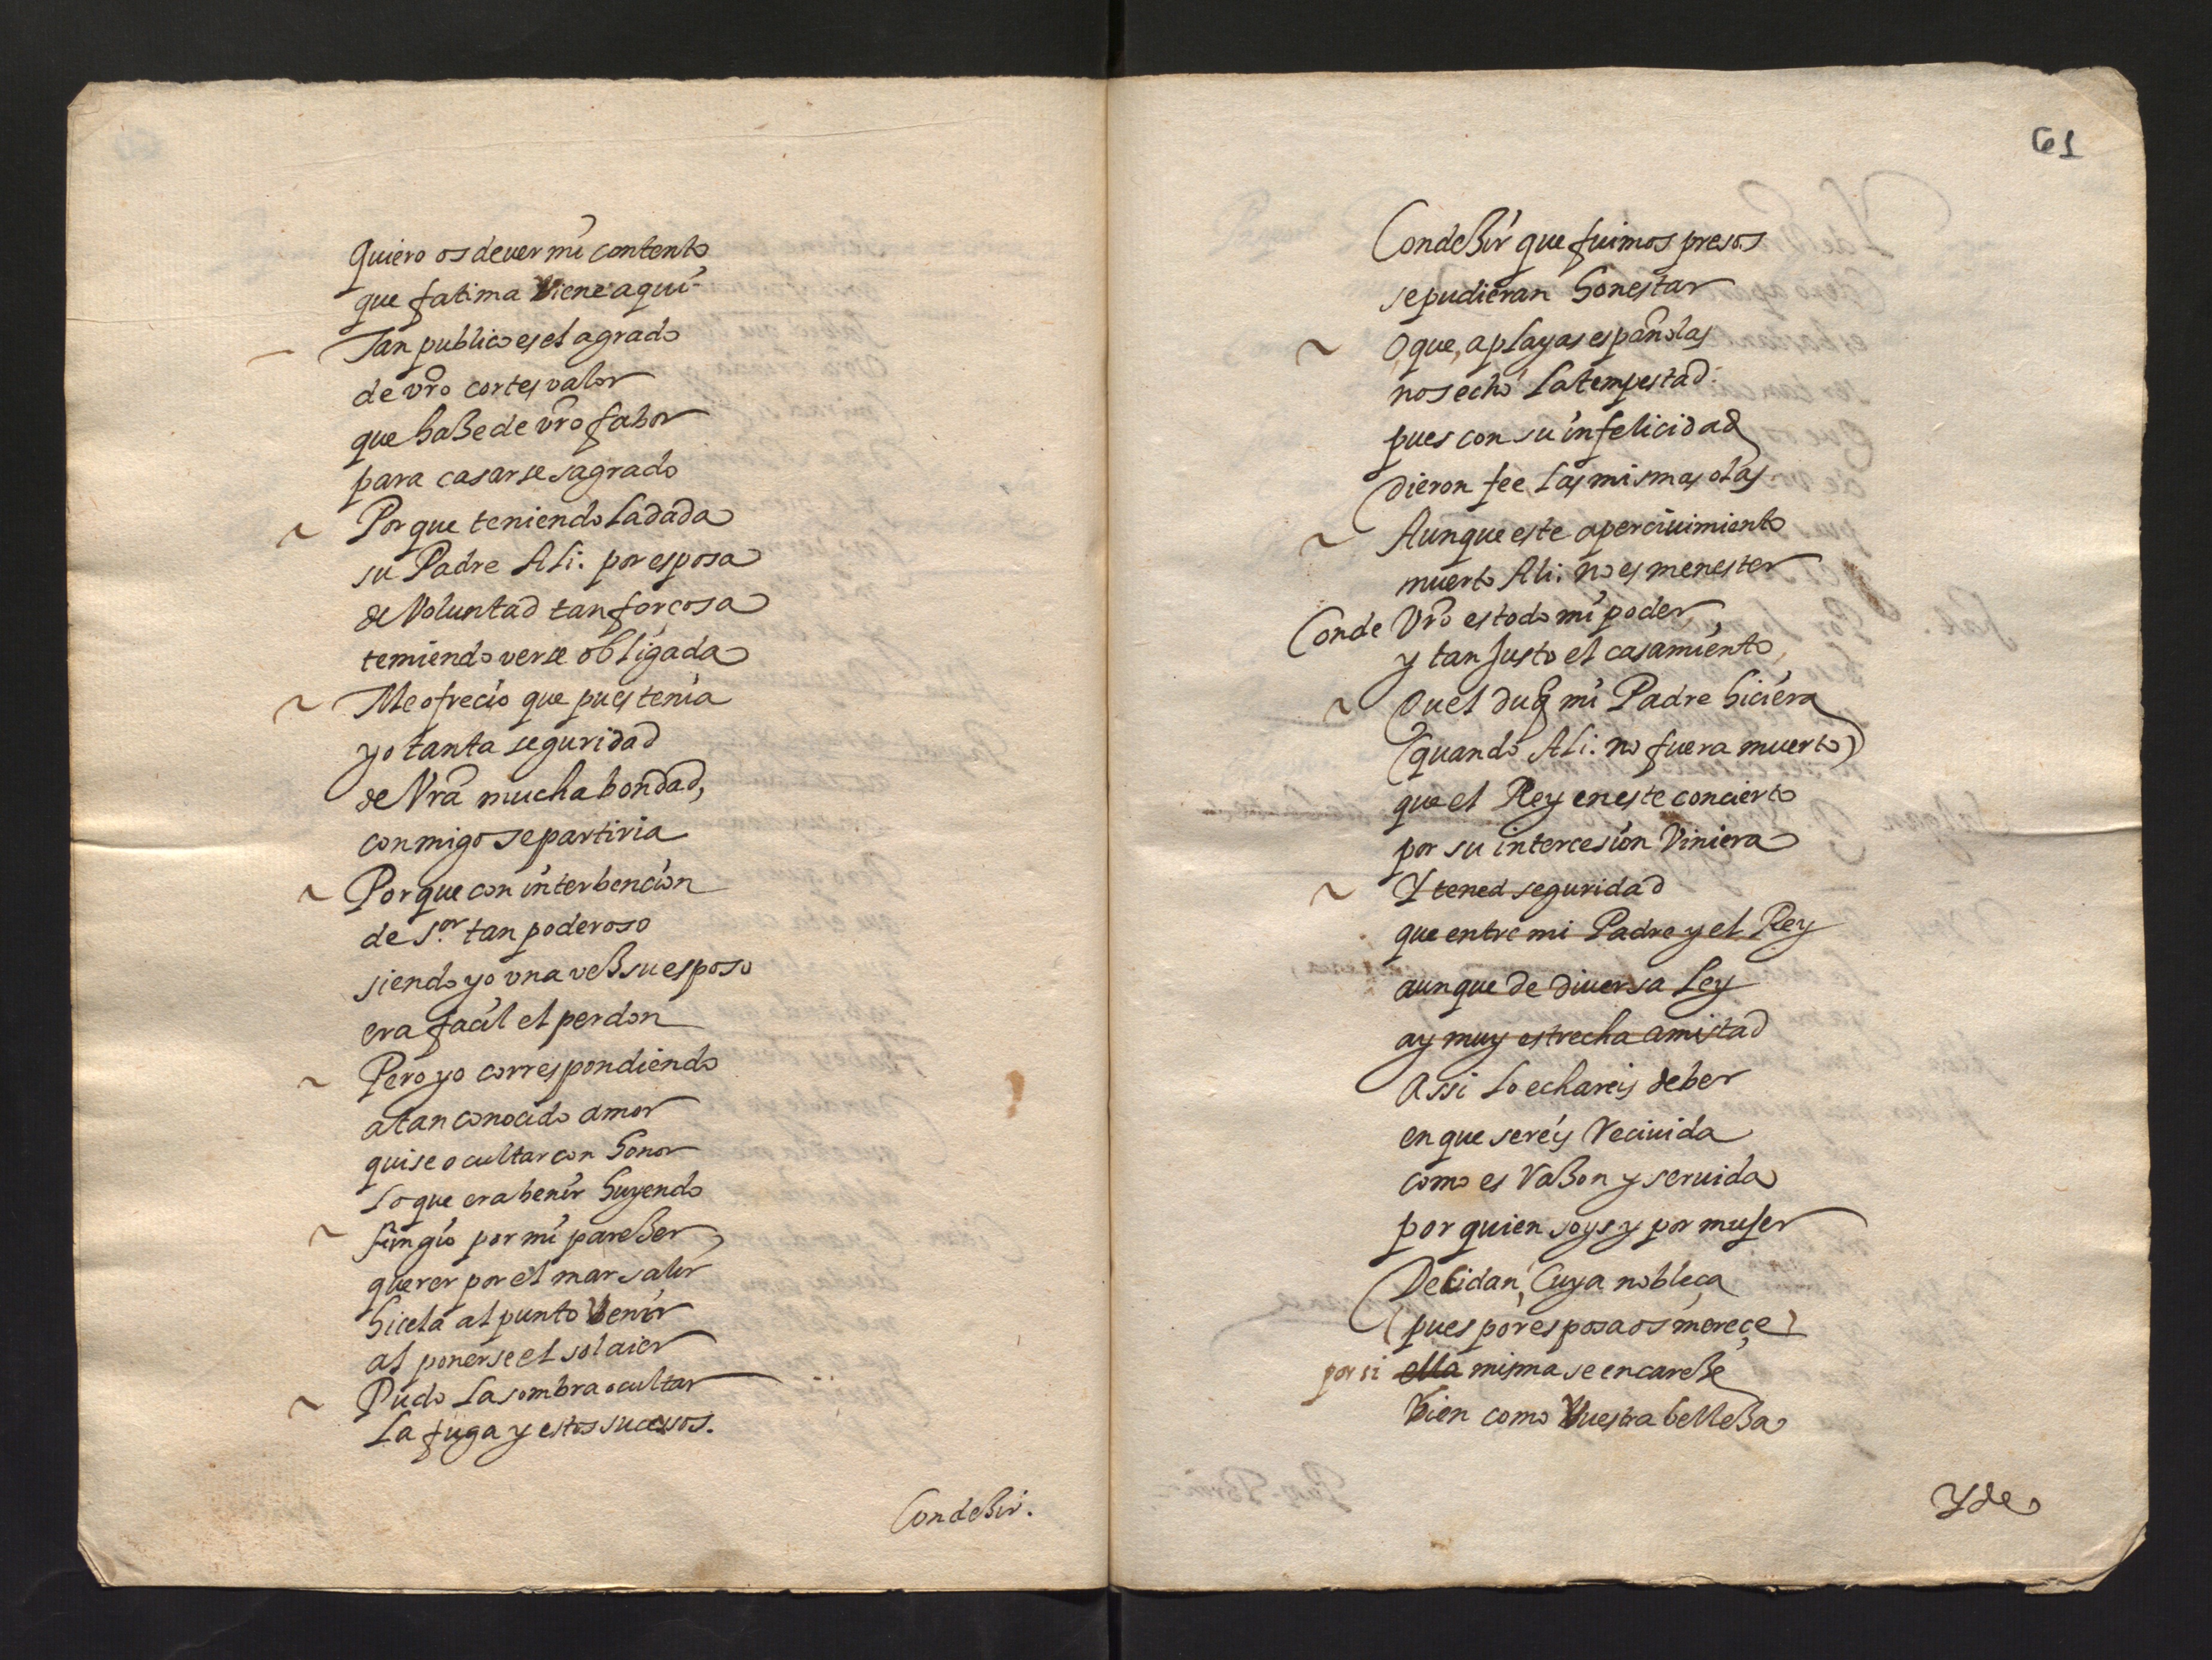 Quiero os dever mi contento
que fatima Viene aqui
~ Tan publico es el agrado
de vr̃o cortes valor
que haze de vr̃o fabor
para casarse sagrado
~ Por que teniendo la dada
su Padre Ali. por esposa
de Voluntad tan forçosa
temiendo verse obligada
~ Me ofrecio que pues tenia
yo tanta seguridad
de Vrã mucha bondad,
conmigo se partiria
~ Por que con interbencion
de s.or tan poderoso
siendo yo vna vez su esposo
era facil el perdon
~ Pero yo correspondiendo
a tan conocido amor
quise ocultar con honor
lo que era benir huyendo
~ fingio por mi parezer
querer por el mar salir
hicela al punto Venir
al ponerse el sol aier
~ Pudo la sombra ocultar
La fuga y estos sucessos.
Con dezir.
61
Con dezir que fuimos presos
se pudieran honestar
~ O que, a playas españolas
nos echo la tempestad.
pues con su infelicidad
dieron fee las mismas olas
~ Aunque este aperciuimiento
muerto Ali. no es menester
Conde Vr̃o es todo mi poder,
y tan Justo el casamiento,
~ Qu el duq mi Padre hiciera
(quando Ali. no fuera muerto)
que el Rey en este concierto
por su intercesion Viniera
~ Y tened seguridad
que entre mi Padre y el Rey
aunque de diuersa Ley
ay muy estrecha amistad
Assi lo echareis de ber
en que sereis Reciuida
como es Razon y seruida
por quien soys y por muJer
De Cidan, Cuya nobleça
(pues por esposa os mereçe)
por si ella misma se encareze
Vien como Vuestra belleza
Y de